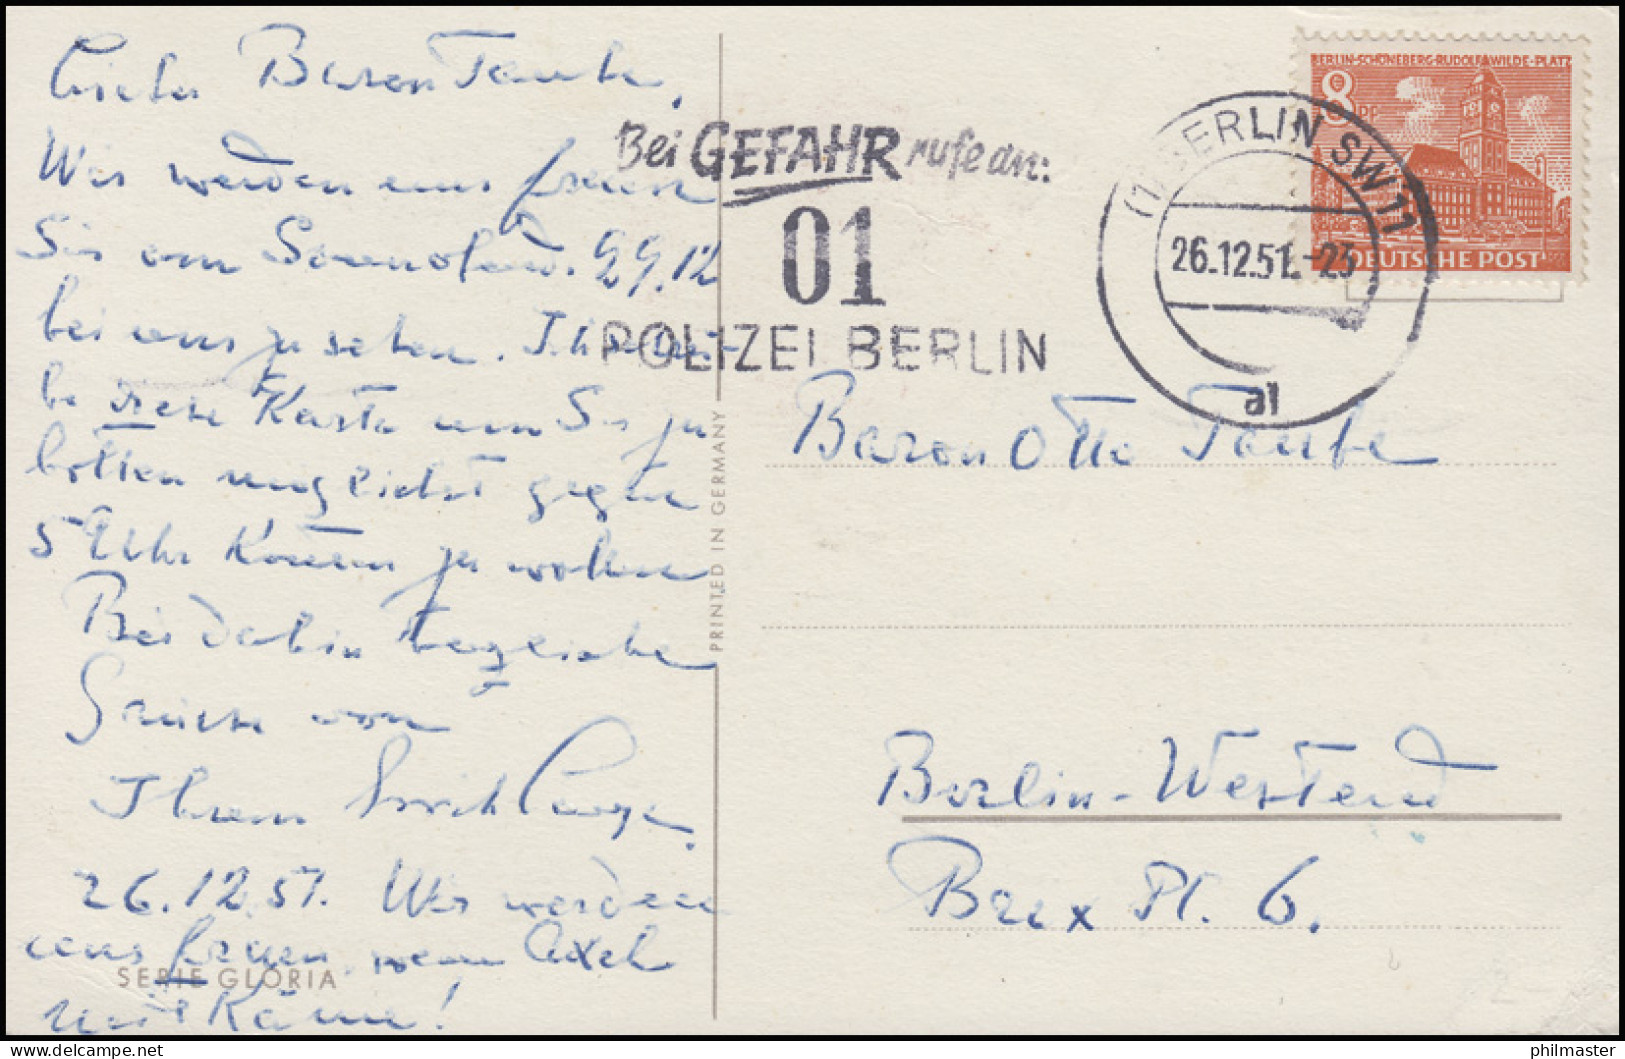 Lieber Baron Taube,
Wir werden uns freuen
Sie am Sonnabend. 29.12
bei uns zu sehen. Ich schrei-
be diese Karte um Sie zu
bitten möglichst gegen
5 Uhr kommen zu wollen
Bis dahin herzliche
Grüsse von
Ihrem
26.12.51. Wir werden
uns freuen, wenn Axel
mit käme!
SERIE GLORIA
PRINTED IN GERMANY
Bei GEFAHR rufe an:
01
POLIZEI BERLIN
(1) BERLIN SW 11
26.12.51.-23
al
BERLIN-SCHÖNEBERG-RUDOLF-WILDE-PLATZ
8 PF
DEUTSCHE POST
Baron Otto Taube
Berlin-Westend
Brix Pl. 6.
www.delcampe.net
philmaster